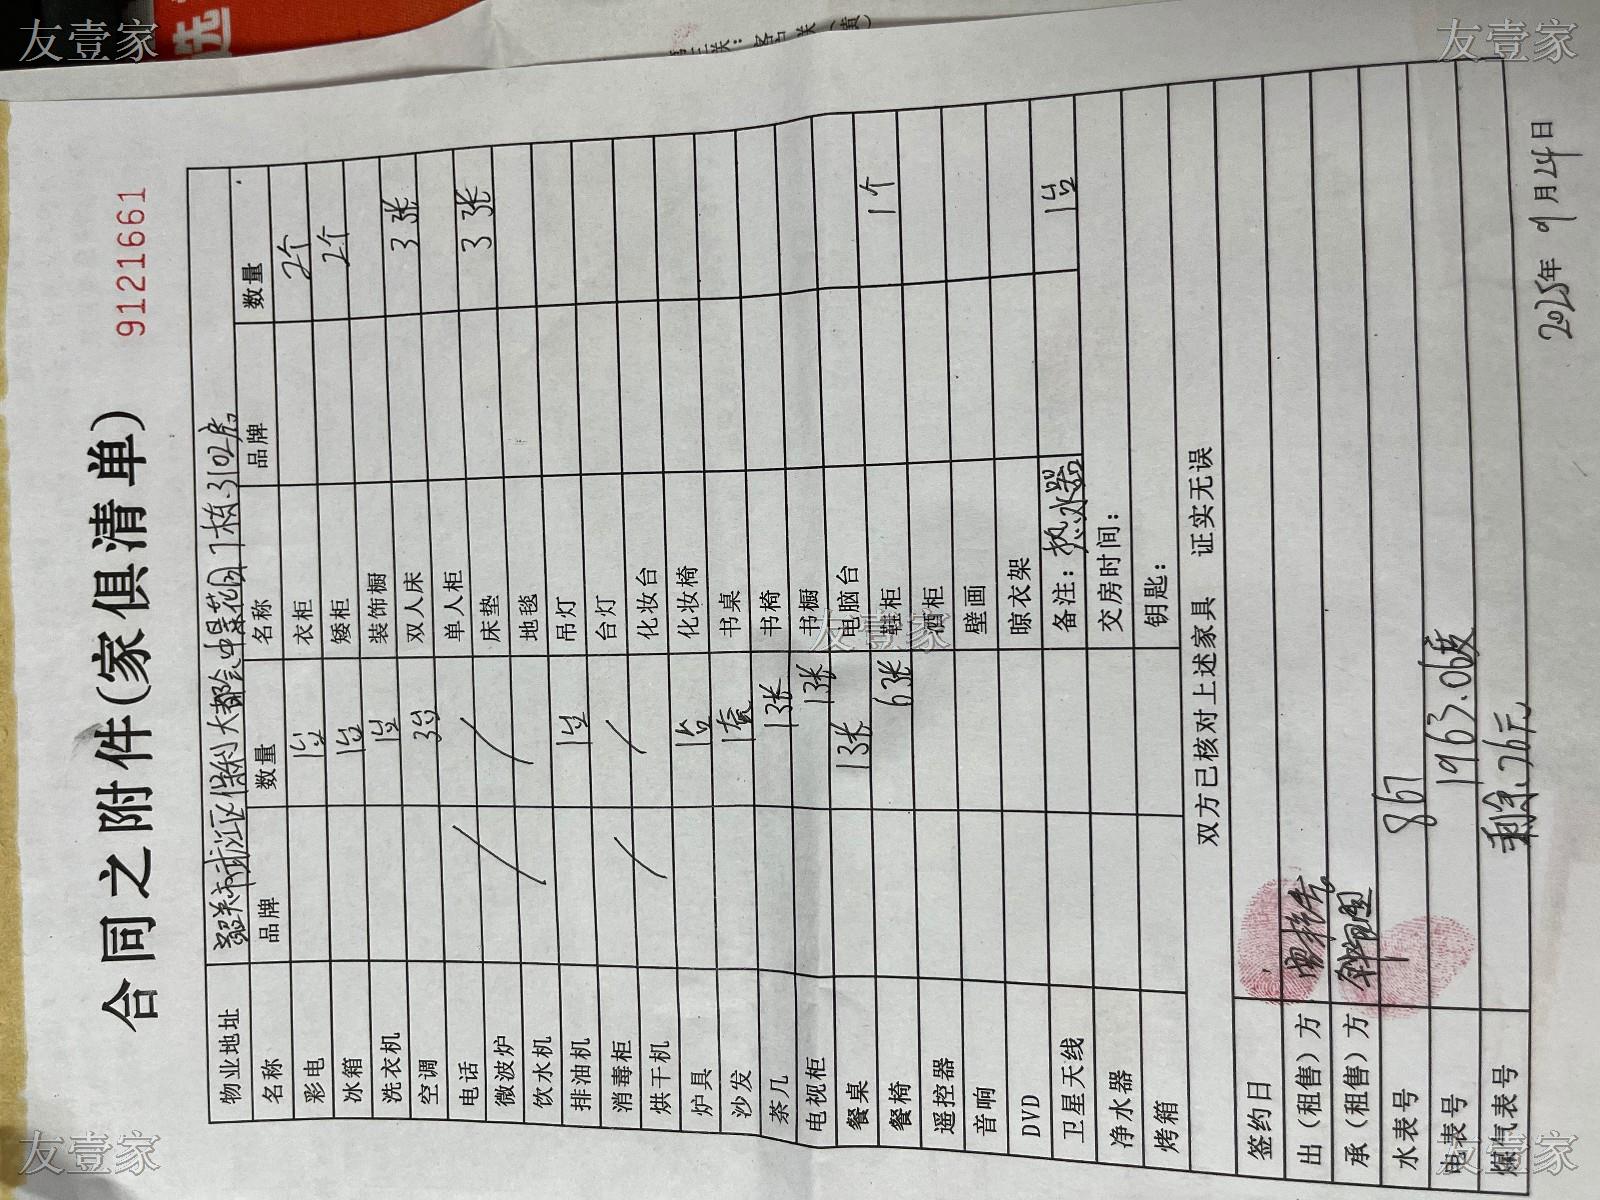 友壹家
友壹家
合同之附件(家俱清单)
9121661
物业地址 韶关市武江区保利大都会中景花园7栋3102房
名称 品牌 数量 名称 品牌 数量
彩电 1台 衣柜 2个
冰箱 1台 矮柜 2个
洗衣机 1台 装饰橱
空调 3台 双人床 3张
电话 单人柜
微波炉 床垫 3张
饮水机 地毯
排油机 1台 吊灯
消毒柜 台灯
烘干机 化妆台
炉具 1台 化妆椅
沙发 1套 书桌
茶几 1张 书椅
电视柜 1张 书橱
餐桌 1张 电脑台
餐椅 6张 鞋柜 1个
遥控器 酒柜
音响 壁画
DVD 晾衣架
卫星天线 备注：热水器 1台
净水器 交房时间：
烤箱 钥匙：
双方已核对上述家具 证实无误
签约日
出（租售）方
承（租售）方
水表号 867
电表号 1963.06度
煤气表号 剩余26元
2025年 9月14日
友壹家
友壹家
友壹家